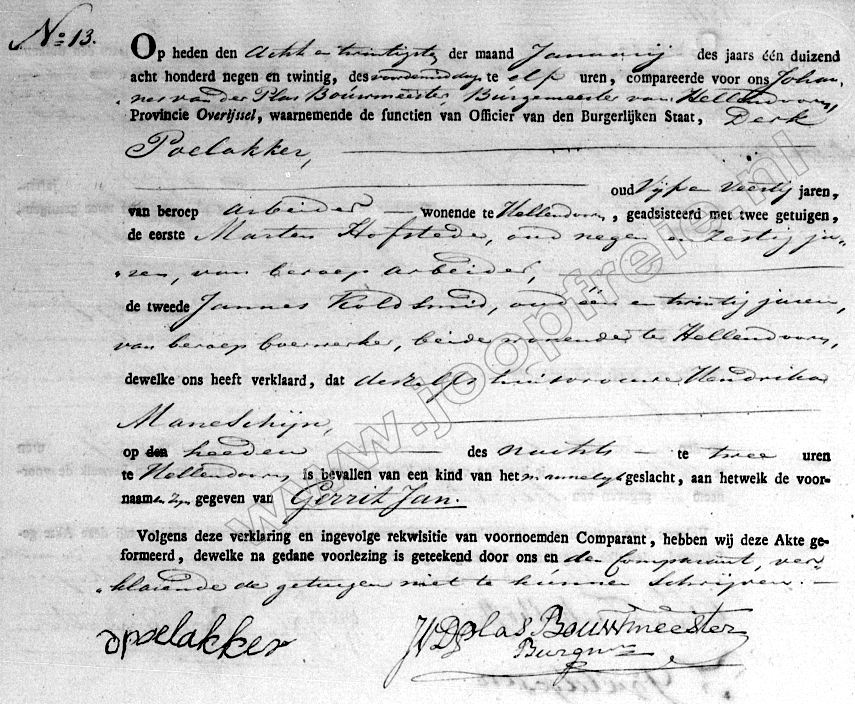 No 13.
Op heden den acht en twintigste der maand Januarij des jaars één duizend
acht honderd negen en twintig, des voordemiddags te elf uren, compareerde voor ons Johan
"nes van der Plas Bouwmeester Burgemeester van Hellendoorn,
Provincie Overijssel, waarnemende de functien van Officier van den Burgerlijken Staat, Derk
Poelakker,
oud Vijf en Veertig jaren,
van beroep arbeider wonende te Hellendoorn, geadsisteerd met twee getuigen,
de eerste Marten Hofstede, oud negen en Zestig ja"
"ren, van beroep arbeider,
de tweede Jannes Koldsmid, oud één en twintig jaren,
van beroep boerwerker, beide wonende te Hellendoorn,
dewelke ons heeft verklaard, dat deszelfs huisvrouwe Hendrika
ManeSchijn,
op den heeden des nachts te twee uren
te Hellendoorn is bevallen van een kind van het mannelijk geslacht, aan hetwelk de voor-
naamen zijn gegeven van Gerrit Jan.
Volgens deze verklaring en ingevolge rekwisitie van voornoemden Comparant, hebben wij deze Akte ge-
formeerd, dewelke na gedane voorlezing is geteekend door ons en den Comparant, ver"
"klarende de getuigen niet te kunnen Schrijven.
dpoelakker
JVDPlas Bouwmeester
Burgmr
www.joopfreie.nl